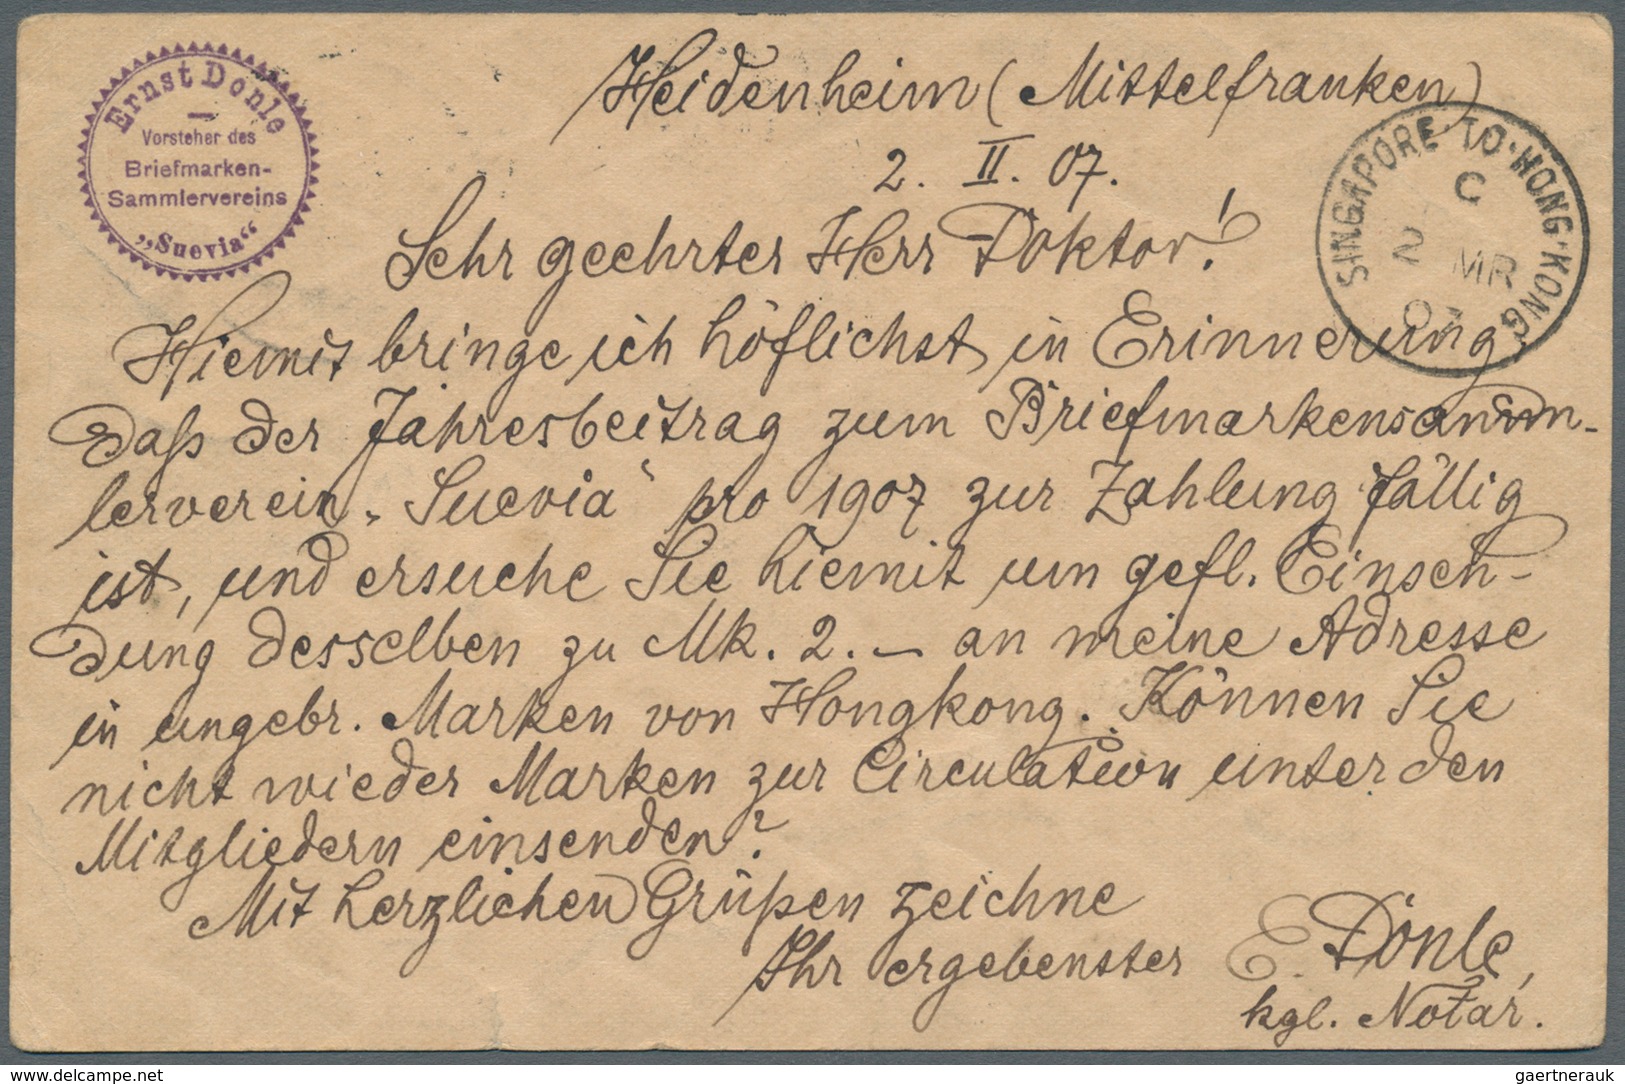 Ernst Donle
Vorsteher des
Briefmarken-
Sammlervereins
„Suevia“
Heidenheim (Mittelfranken)
2. II. 07.
SINGAPORE TO HONG·KONG
C
2 MR
07
Sehr geehrter Herr Doktor!
Hiemit bringe ich höflichst in Erinnerung,
daß der Jahresbeitrag zum Briefmarkensamm-
lerverein „Suevia“ pro 1907 zur Zahlung fällig
ist, und ersuche Sie hiemit um gefl. Einsen-
dung desselben zu Mk. 2.— an meine Adresse
in ungebr. Marken von Hongkong. Können Sie
nicht wieder Marken zur Circulation unter den
Mitgliedern einsenden?
Mit herzlichen Grüßen zeichne
Ihr ergebenster E. Donle,
kgl. Notar.
www.delcampe.net
gaertnerauk